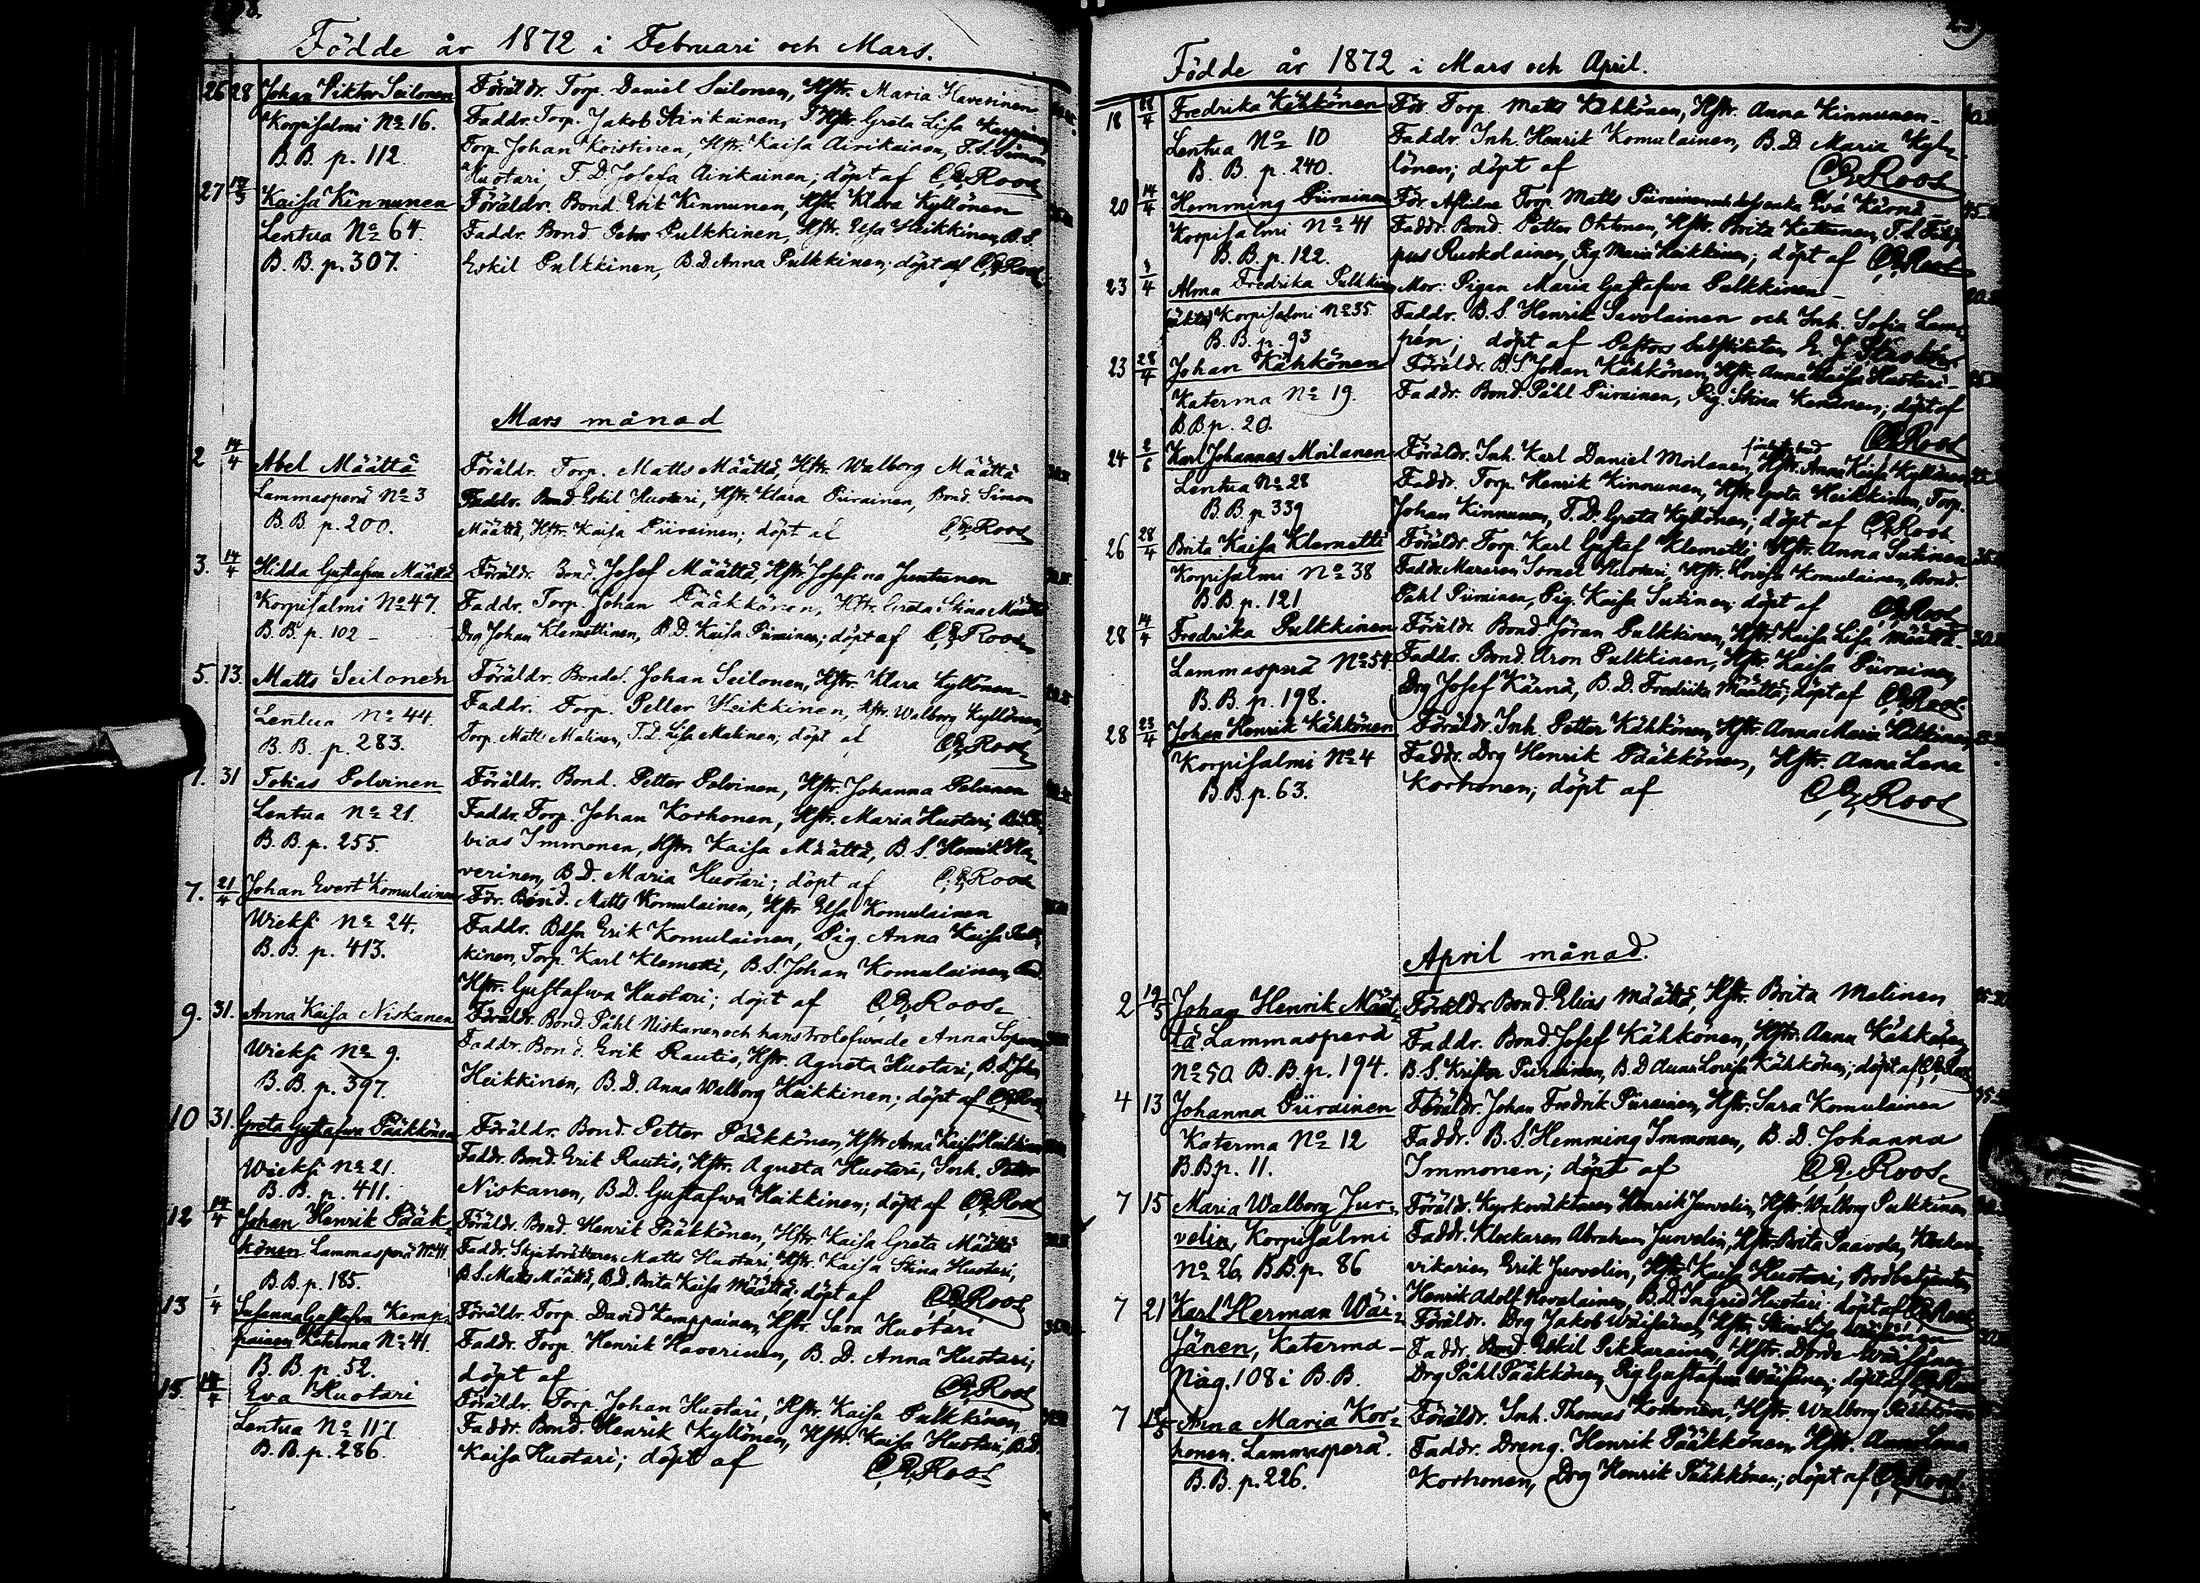 Födde år 1872 i Februari och Mars.
26 28 Johan Viktor Seilonen Föräldr. Torp. Daniel Seilonen, Hstr. Maria Haverinen
Korpisalmi No 16. Faddr. Torp. Jakob Airikainen, Hstr. Greta Lisa
B.B. p. 112. Torp. Johan Koistinen, Hstr. Kaisa Airikainen, T.S. Simon
Huotari, T.D. Josefa Airikainen; döpt af Roos
27 Kaisa Kinnunen Föräldr. Bond. Erik Kinnunen, Hstr. Klara Kyllönen
Lentua No 64. Faddr. Bond. Petter Pulkkinen, Hstr. Elsa Heikkinen, B.S.
B.B. p. 307. Eskil Pulkkinen, B.D. Anna Pulkkinen; döpt af Roos
Mars månad
2 14/4 Abel Määttä Föräldr. Torp. Matts Määttä, Hstr. Walborg Määttä
Lammasperä No 3 Faddr. Bond. Eskil Huotari, Hstr. Klara Piirainen, Bond Simon
B.B. p. 200. Määttä, Hstr. Kaisa Piirainen; döpt af Roos
3. 14/4 Hilda Gustafwa Määttä Föräldr. Bond. Josef Määttä, Hstr. Josefina Juntunen
Korpisalmi No 47. Faddr. Torp. Johan Pääkkönen, Hstr. Greta Stina Määttä
B.B. p. 102 Drg Johan Klemettinen, B.D. Kaisa Piirainen; döpt af Roos
5. 13. Matts Seilonen Föräldr. Bondes. Johan Seilonen, Hstr. Klara Kyllönen
Lentua No 44. Faddr. Torp. Petter Heikkinen, Hstr. Walborg Kyllönen,
B.B. p. 283. Torp. Matts Malinen, T.D. Lisa Malinen; döpt af Roos
7. 31 Tobias Polvinen Föräldr. Bond. Petter Polvinen, Hstr. Johanna Polvinen
Lentua No 21. Faddr. Torp. Johan Korhonen, Hstr. Maria Huotari,
B.B. p. 255. bias Immonen, Hstr. Kaisa Määttä, B.S. Henrik Ha-
verinen, B.D. Maria Huotari; döpt af Roos
7. 21/4 Johan Evert Komulainen För. Bond. Matts Komulainen, Hstr Elsa Komulainen
Wieksi No 24. Faddr. Bdsn Erik Komulainen, Pig. Anna Kaisa Pulk-
B.B. p. 413. kinen, Torp. Karl Klemetti, B.S. Johan Komulainen,
Hstr. Gustafwa Huotari; döpt af Roos
9. 31. Anna Kaisa Niskanen Föräldr. Bond. Påhl Niskanen och hans trolofwade Anna
Wieksi No 9. Faddr. Bond. Erik Rautio, Hstr. Agneta Huotari, B.S. John
B.B. p. 397. Heikkinen, B.D. Anna Walborg Heikkinen; döpt af Roos
10 31. Greta Gustafwa Pääkkönen Föräldr. Bond. Petter Pääkkönen, Hstr. Anna Kaisa Heikkinen
Wieksi No 21. Faddr. Bond. Erik Rautio, Hstr. Agneta Huotari, Inh. Petter
B.B. p. 411. Niskanen, B.D. Gustafwa Heikkinen; döpt af Roos
12 14/4 Johan Henrik Pääk- Föräldr. Bond. Henrik Pääkkönen, Hstr. Kaisa Greta Määttä
könen Lammasperä No 41 Faddr. Skjutsrättaren Matts Huotari, Hstr. Kaisa Stina Huotari,
B.B. p. 185. B.S. Matts Määttä, B.D. Brita Kaisa Määttä; döpt af Roos
13 1/4 Susanna Gustafwa Kemp- Föräldr. Torp. David Kemppainen, Hstr. Sara Huotari
painen Katerma No 41. Faddr. Torp. Henrik Haverinen, B.D. Anna Huotari;
B.B. p. 52. döpt af Roos
15. 14/4 Eva Huotari Föräldr. Torp. Johan Huotari, Hstr. Kaisa Pulkkinen,
Lentua No 117 Faddr. Bond. Henrik Kyllönen, Hstr. Kaisa Huotari, B.D.
B.B. p. 286. Kaisa Huotari; döpt af Roos
Födde år 1872 i Mars och April.
18 Fredrika Kähkönen För. Torp. Matts Kähkönen, Hstr. Anna Kinnunen
Lentua No 10 Faddr. Inh. Henrik Komulainen, B.D. Maria Kyl-
B.B. p. 240. lönen; döpt af Roos
20 14/4 Hemming Piirainen För. Aflidne Torp. Matts Piirainen och dess enka Eva Kärnä
Korpisalmi No 41 Faddr. Bond. Petter Ohtonen, Hstr. Brita Kettunen, T.S. Filip-
B.B. p. 122. pus Ruokolainen, Pig Maria Heikkinen; döpt af Roos
23 Alma Fredrika Pulkkinen Mor: Pigan Maria Gustafwa Pulkkinen
Korpisalmi No 35. Faddr. B.S. Henrik Savolainen och Inh. Sofia Lam-
B.B. p. 93 pén; döpt af Pastors Substituten
23 28/4 Johan Kähkönen Föräldr. B.S. Johan Kähkönen, Hstr. Anna Kaisa Huotari
Katerma No 19. Faddr. Bond. Påhl Piirainen, Pig. Stina Keränen; döpt af
B.B. p. 20. Roos
24 2/6 Karl Johannes Moilanen Föräldr. Inh. Karl Daniel Moilanen, Hstr. Anna Kaisa Kyllönen
Lentua No 28 Faddr. Torp. Henrik Kinnunen, Hstr. Greta Heikkinen, Torp.
B.B. p. 339 Johan Kinnunen, T.D. Greta Kyllönen; döpt af Roos
26 28/4 Brita Kaisa Klemetti Föräldr. Torp. Karl Gustaf Klemetti, Hstr. Anna Sutinen
Korpisalmi No 38 Faddr. Muraren Israel Huotari, Hstr. Lovisa Komulainen, Bond.
B.B. p. 121 Påhl Piirainen, Pig. Kaisa Sutinen; döpt af Roos
28 14/4 Fredrika Pulkkinen Föräldr. Bond. Jöran Pulkkinen, Hstr. Kaisa Lisa Määttä
Lammasperä No 54. Faddr. Bond. Aron Pulkkinen, Hstr. Kaisa Piirainen,
B.B. p. 198. Drg Josef Kärnä, B.D. Fredrika Määttä; döpt af Roos
28 Johan Henrik Kähkönen Föräldr. Inh. Petter Kähkönen, Hstr. Anna Maria
Korpisalmi No 4 Faddr. Drg Henrik Pääkkönen, Hstr. Anna Lena
B.B. p. 63. Korhonen; döpt af Roos
April månad.
2 19/5 Johan Henrik Määt- Föräldr. Bond. Elias Määttä, Hstr. Brita Malinen
tä. Lammasperä Faddr. Bond. Josef Kähkönen, Hstr. Anna Kähkönen,
No 50. B.B. p. 194. B.S. Krister Piirainen, B.D. Anna Lovisa Kähkönen; döpt af Roos
4 13 Johanna Piirainen Föräldr. Johan Fredrik Piirainen, Hstr. Sara Komulainen
Katerma No 12 Faddr. B.S. Hemming Immonen, B.D. Johanna
B.B. p. 11. Immonen; döpt af Roos
7 15 Maria Walborg Jur- Föräldr. Kyrkowäktaren Henrik Jurvelin, Hstr. Walborg Pulkkinen
velin, Korpisalmi Faddr. Klockaren Abraham Jurvelin, Hstr. Brita Paavola, Klockare-
No 26. B.B. p. 86 vikarien Erik Jurvelin, Hstr. Kaisa Huotari,
Henrik Adolf Hovalainen, B.D. Ingrid Huotari; döpt af Roos
7 21 Karl Herman Wäi- Föräldr. Drg Jakob Wäisänen, Hstr. Stina Lisa
sänen, Katerma Faddr. Bond. Eskil Pikkarainen, Hstr. Dorde
Pag. 108 i B.B. Drg Påhl Pääkkönen, Pig Gustafwa Wäisänen; döpt af Roos
7 Anna Maria Kor- Föräldr. Inh. Thomas Korhonen, Hstr. Walborg
honen. Lammasperä. Faddr. Dreng. Henrik Pääkkönen, Hstr. Anna Lena
B.B. p. 226. Korhonen, Drg Henrik Pääkkönen; döpt af Roos